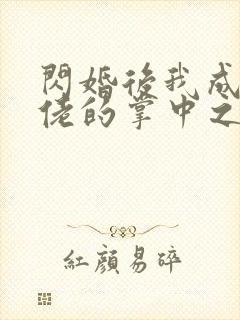 閃婚後我成
佬的掌中之
紅顏易碎